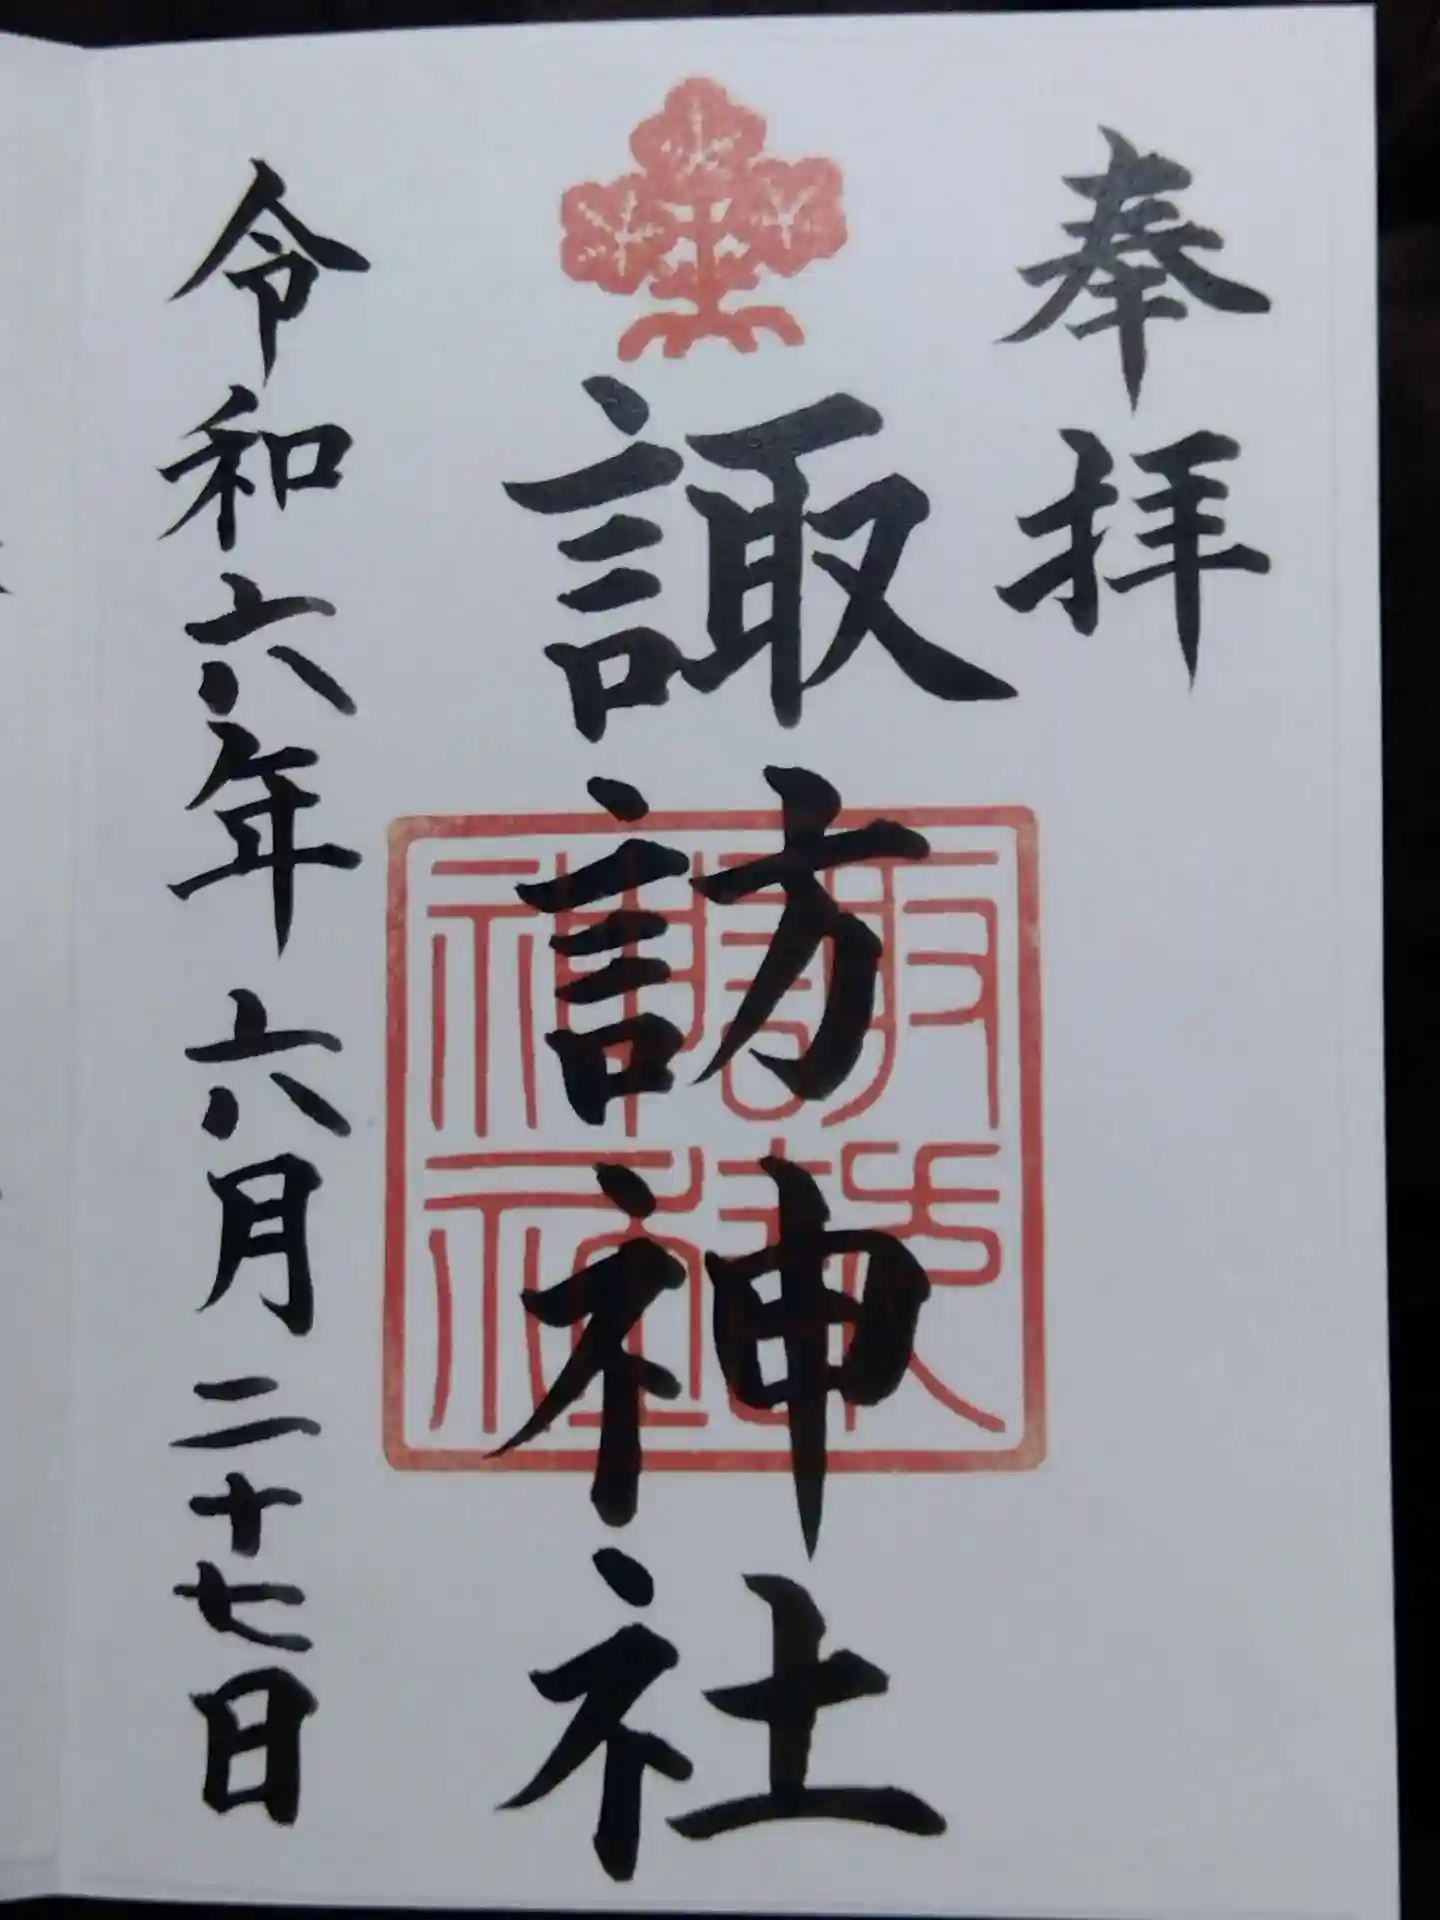 奉拝
諏訪神社
令和六年六月二十七日